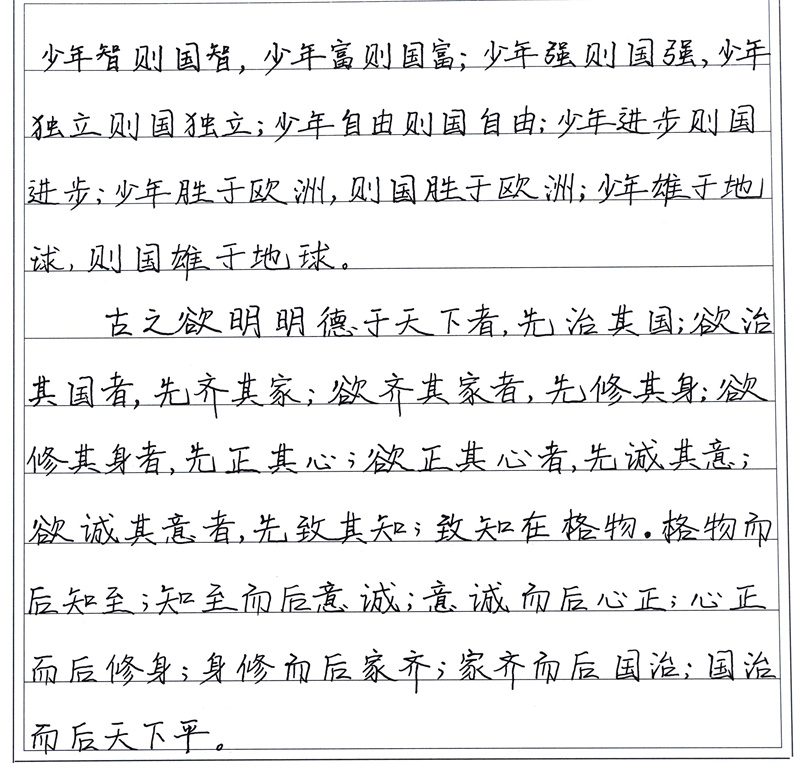 少年智则国智，少年富则国富；少年强则国强，少年
独立则国独立；少年自由则国自由；少年进步则国
进步；少年胜于欧洲，则国胜于欧洲；少年雄于地
球，则国雄于地球。
古之欲明明德于天下者，先治其国；欲治
其国者，先齐其家；欲齐其家者，先修其身；欲
修其身者，先正其心；欲正其心者，先诚其意；
欲诚其意者，先致其知；致知在格物．格物而
后知至；知至而后意诚；意诚而后心正；心正
而后修身；身修而后家齐；家齐而后国治；国治
而后天下平。